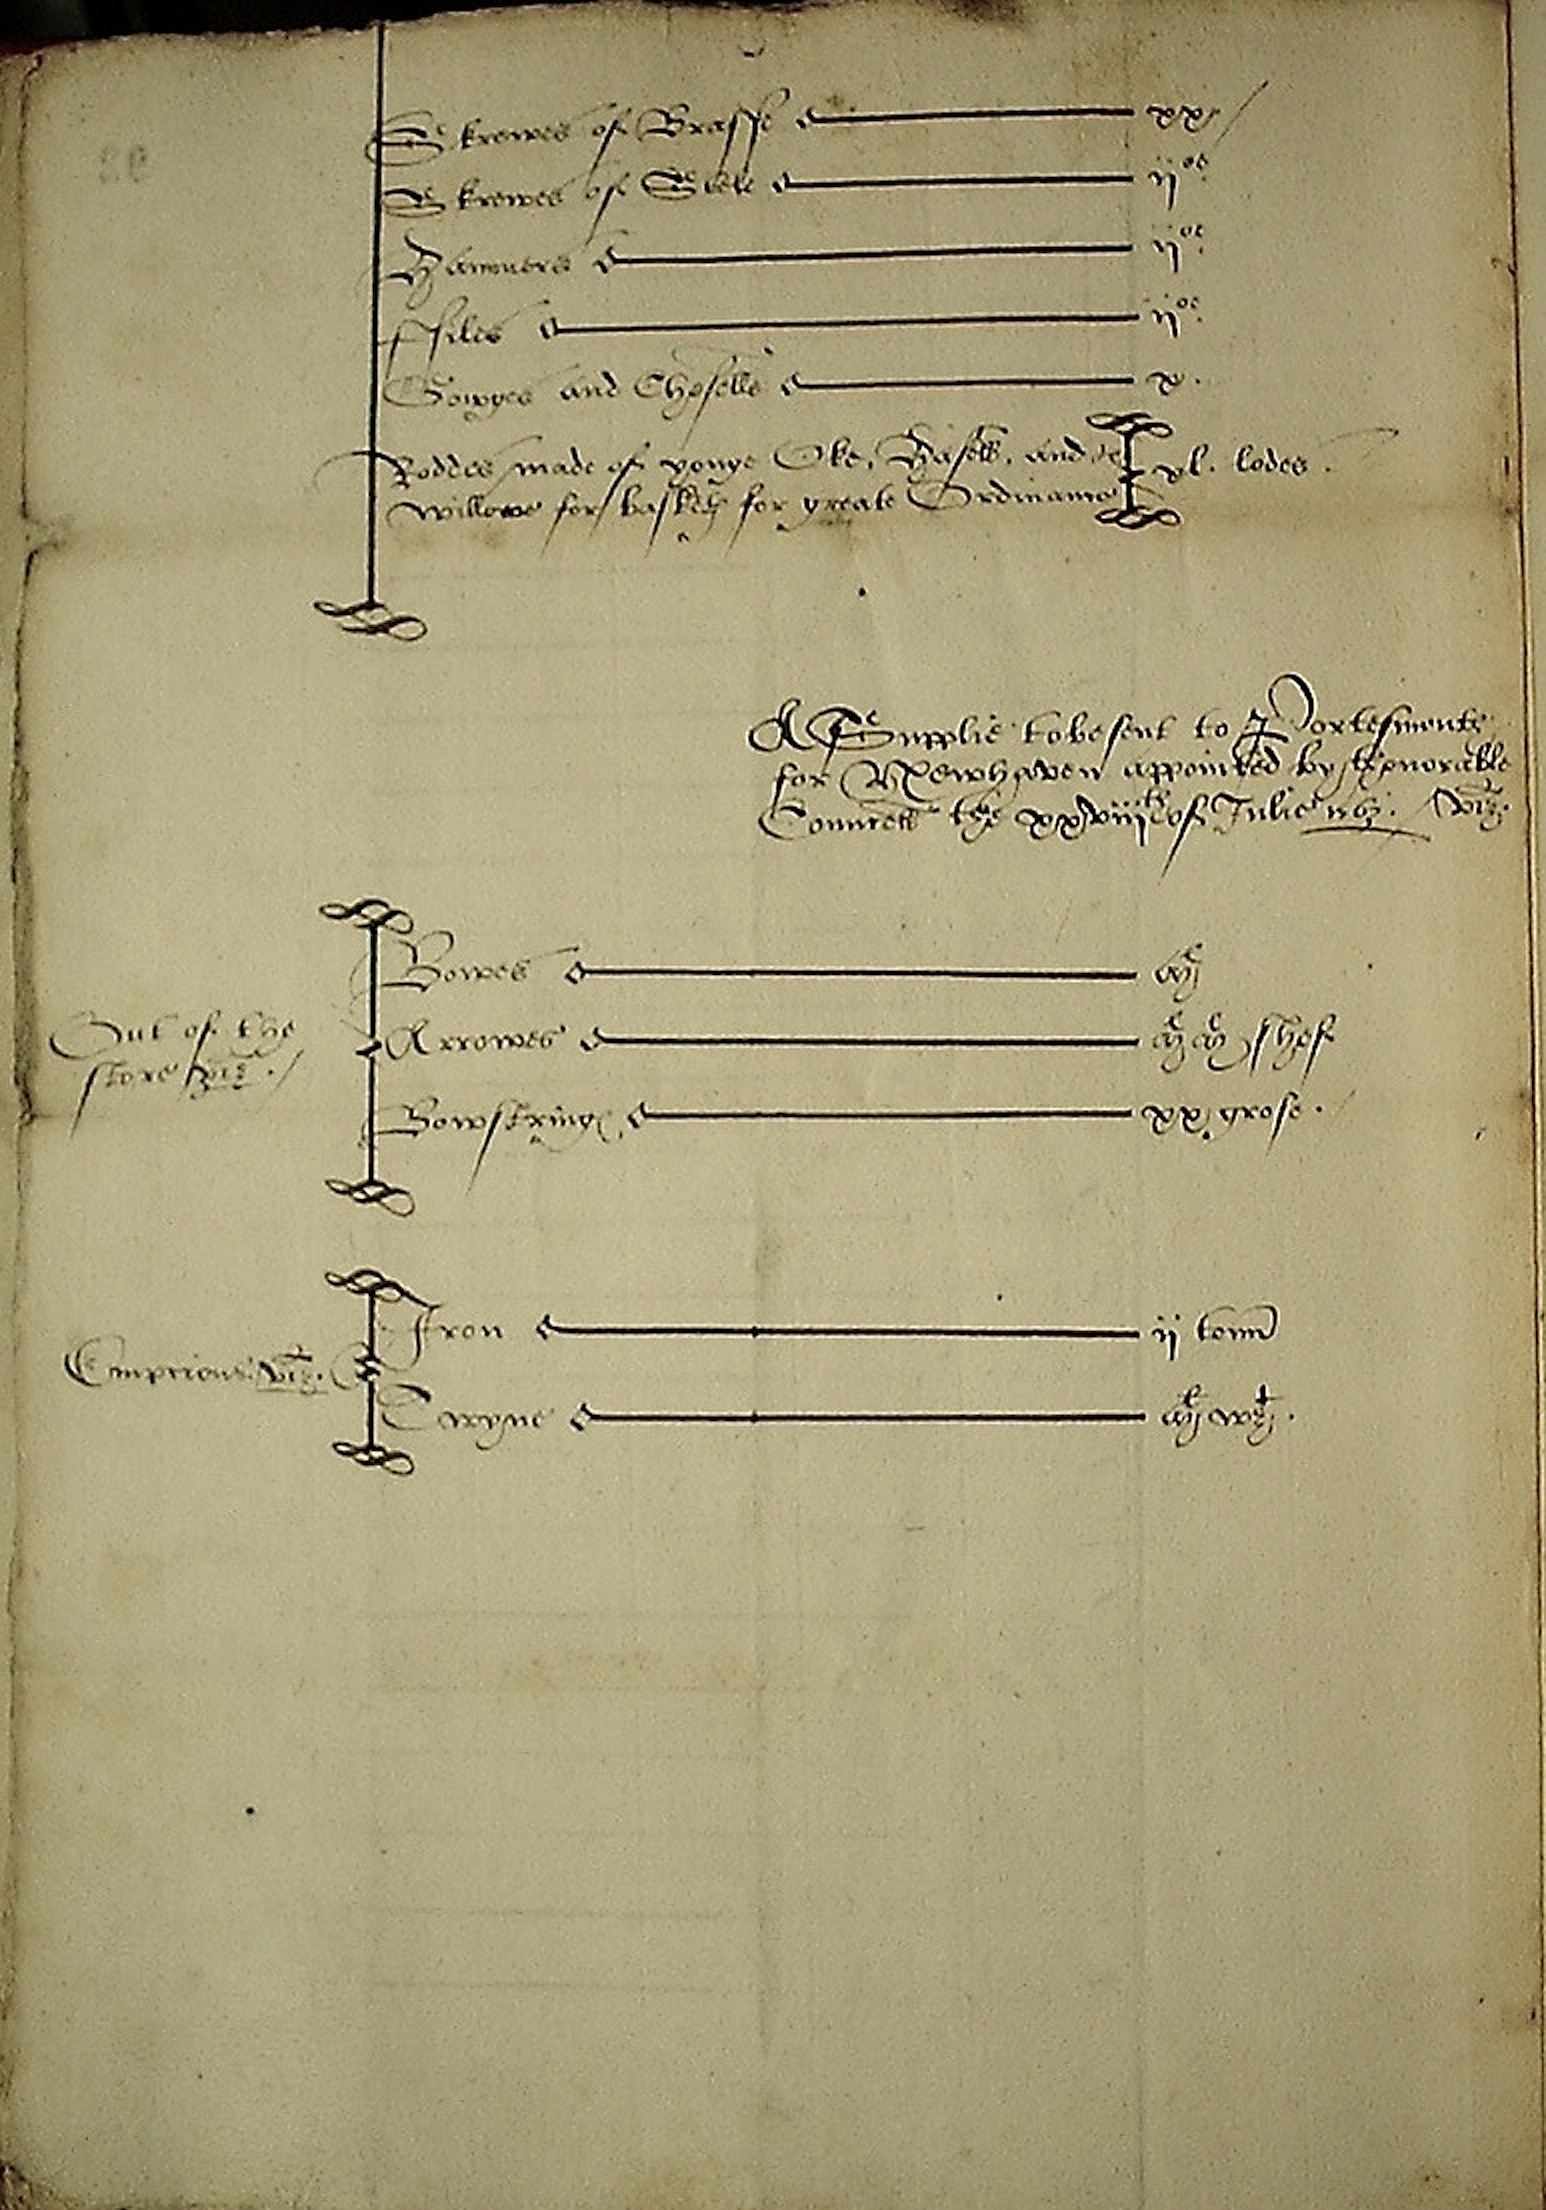 Skrewes of Brasse xx
Skrewes of Stele ii oe
Hammers ii oe
ffiles ii oe
Gowges and Chyselle x.
Roddes made of yonge Oke, Hasell, and
willowe for baskett for greate Ordinance xl. lodes.
A Supplie to be sent to Portesmouthe
for Newhaven appointed by thonorable
Counsell the xxviiith of Julie 1563. viz.
Out of the
store viz.
Bowes
Arrowes shef
Bowstring xx grose.
Empcions viz.
Iron ii tonn
Twyne